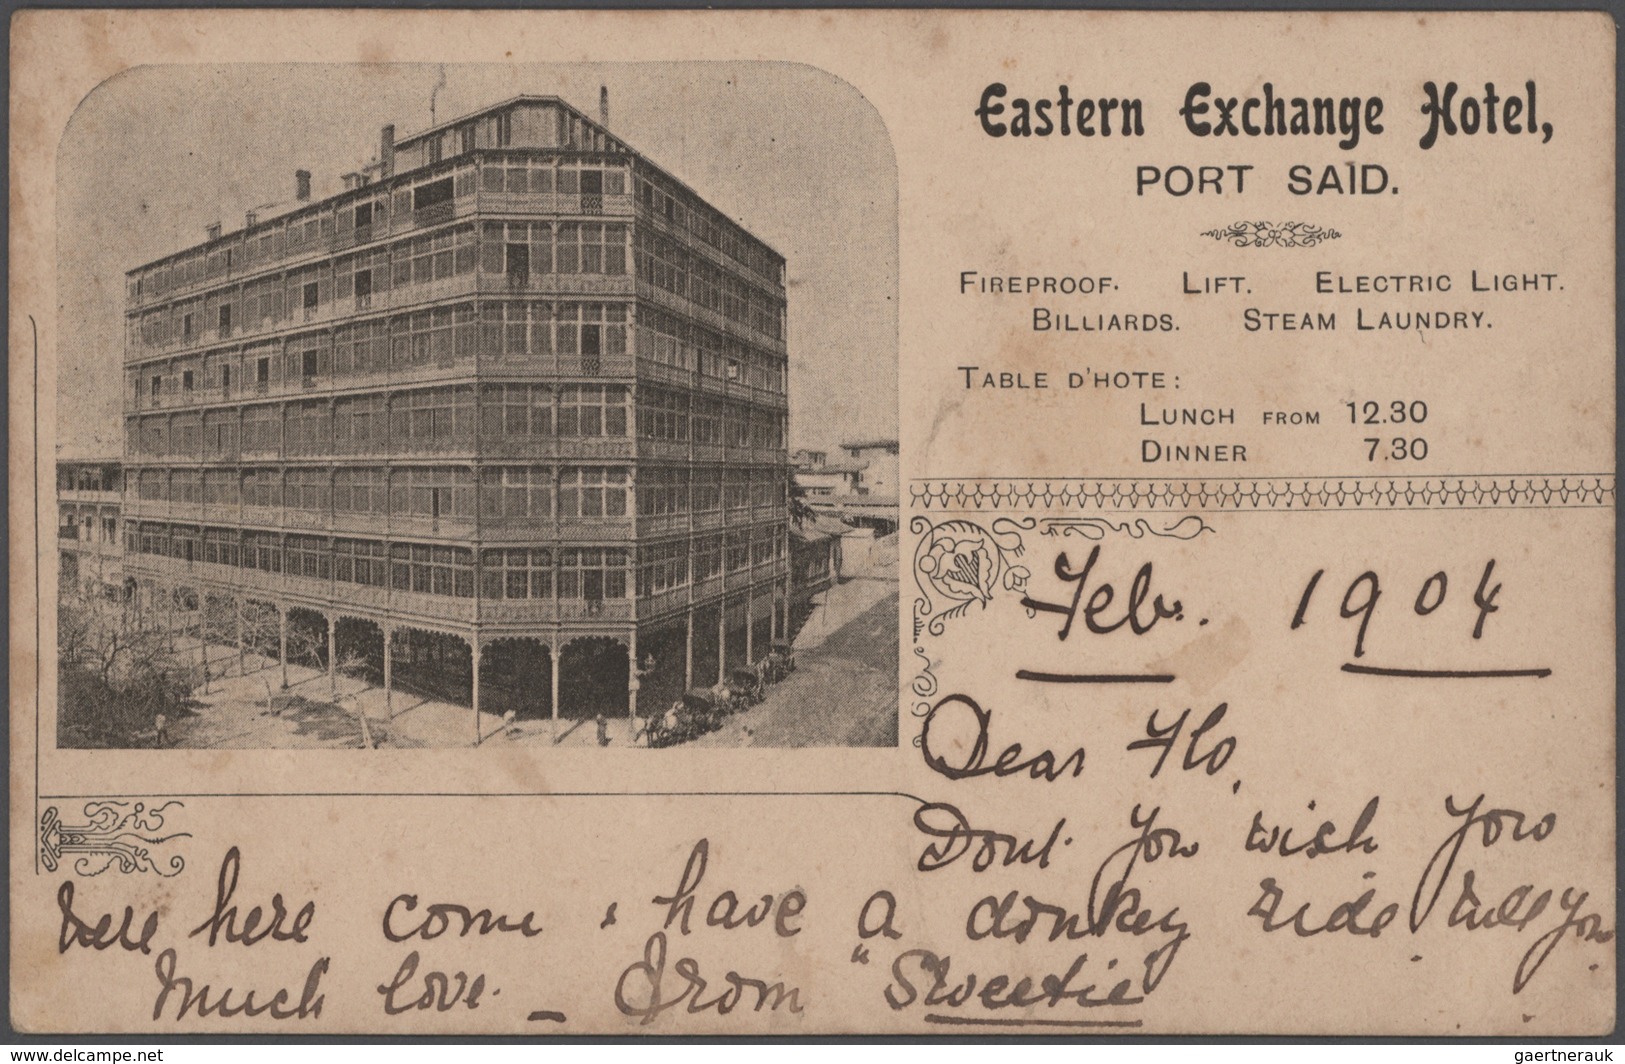 Eastern Exchange Hotel,
PORT SAÏD.
FIREPROOF. LIFT. ELECTRIC LIGHT.
BILLIARDS. STEAM LAUNDRY.
TABLE D'HOTE:
LUNCH FROM 12.30
DINNER 7.30
Feb. 1904
Dear Flo,
Dont you wish you
were here come & have a donkey ride will you
Much love - From "Sweetie"
www.delcampe.net
gaertnerauk